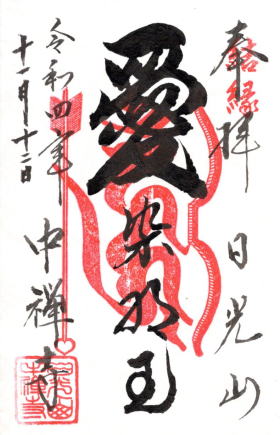 奉拝 日光山
結縁
愛染明王
令和四年
十一月十二日
中禅寺